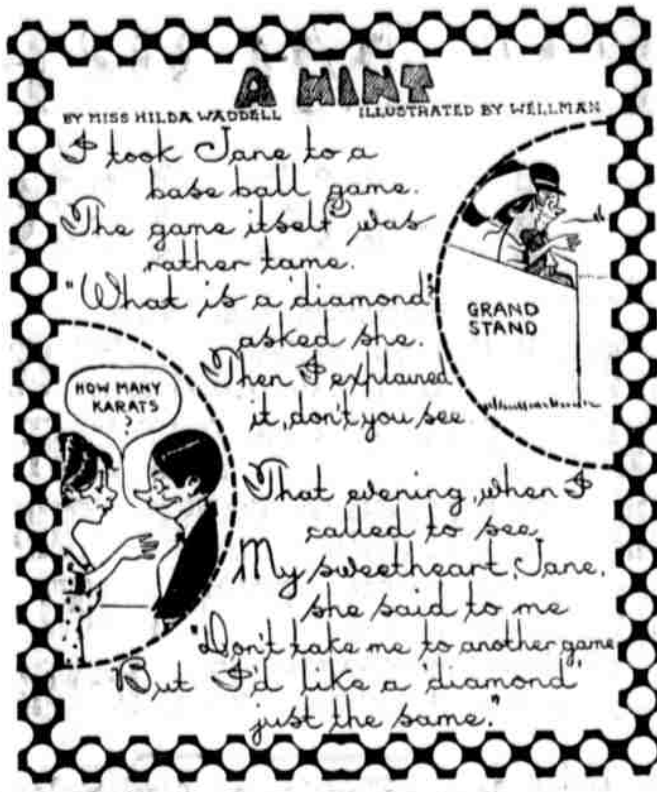 A HINT
BY MISS HILDA WADDELL ILLUSTRATED BY WELLMAN
I took Jane to a
base ball game.
The game itself was
rather tame.
"What is a 'diamond'"
asked she.
Then I explained
it, don't you see.
GRAND
STAND
HOW MANY
KARATS
?
That evening, when I
called to see
My sweetheart, Jane,
she said to me
"Don't take me to another game
But I'd like a 'diamond'
just the same."